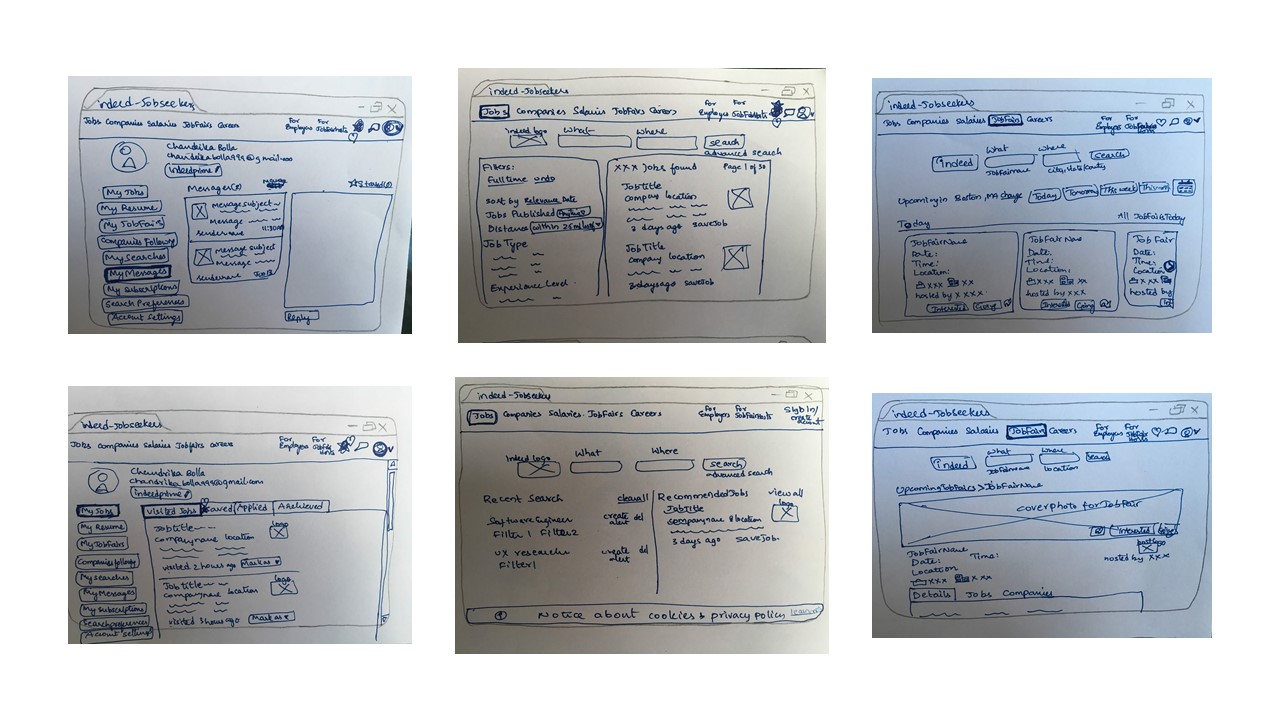 indeed-Jobseekers
Jobs Companies Salaries JobFairs Careers
For Employers For JobFairHosts
Chandrika Bolla
indeedprime
My Jobs
My Resume
My JobFairs
Companies Following
My Searches
My Messages
My Subscriptions
Search Preferences
Account Settings
Messages(x)
Starred(x)
message subject
message
sendername 11:30AM
message subject
message
sendername
Reply
indeed-Jobseekers
Jobs Companies Salaries JobFairs Careers
For Employers For JobFairHosts
indeed logo What Where search
advanced search
Filters:
Fulltime undo
sort by Relevance Date
Jobs Published
Distance within 25 miles
Job Type
Experience Level
xxx Jobs found Page 1 of 30
Job title
company location
3 days ago saveJob
Job Title
Company location
3 days ago saveJob
indeed-Jobseekers
Jobs Companies Salaries JobFair Careers
For Employers
indeed What Where search
JobFairName city, state/county
Upcoming in Boston, MA change Today Tomorrow This week This month
Today All JobFairs Today
JobFairName
Date:
Time:
Location:
xxx xx
hosted by x x x x
Interested Going
JobFair Name
Date:
Time:
Location:
xxx xx
hosted by xxx
Interested Going
Job Fair
Date:
Time:
Location
xxx
hosted by
indeed-Jobseekers
Jobs Companies Salaries Jobfairs careers
For Employers For
Chandrika Bolla
chandrika.bolla999@gmail.com
indeedprime
My Jobs
My Resume
My JobFairs
Companies following
My searches
My Messages
My Subscriptions
Search preferences
Account settings
visited Jobs Saved Applied Archieved
Job title
Company name location
logo
visited 2 hours ago Mark as
Job title
Company name location
logo
visited 3 hours ago Mark as
indeed-Jobseekers
Jobs Companies Salaries JobFairs Careers
For Employers For JobFairHosts Sign In/ create account
Indeed Logo What Where search
advanced search
Recent Search clear all
Software Engineer create alert del
Filter 1 Filter 2
UX researcher create alert del
Filter 1
Recommended Jobs view all
Job Title
company name & location
logo
3 days ago saveJob.
Notice about cookies & privacy policy
indeed-Jobseekers
Jobs Companies Salaries JobFair Careers
For Employers For JobFair Hosts
indeed What Where search
JobFairname location
UpcomingJobFairs > JobFairName
cover photo for JobFair
Interested Going
JobFairName
Date: Time:
Location
xxx x xx
hosted by x x x
Details Jobs Companies